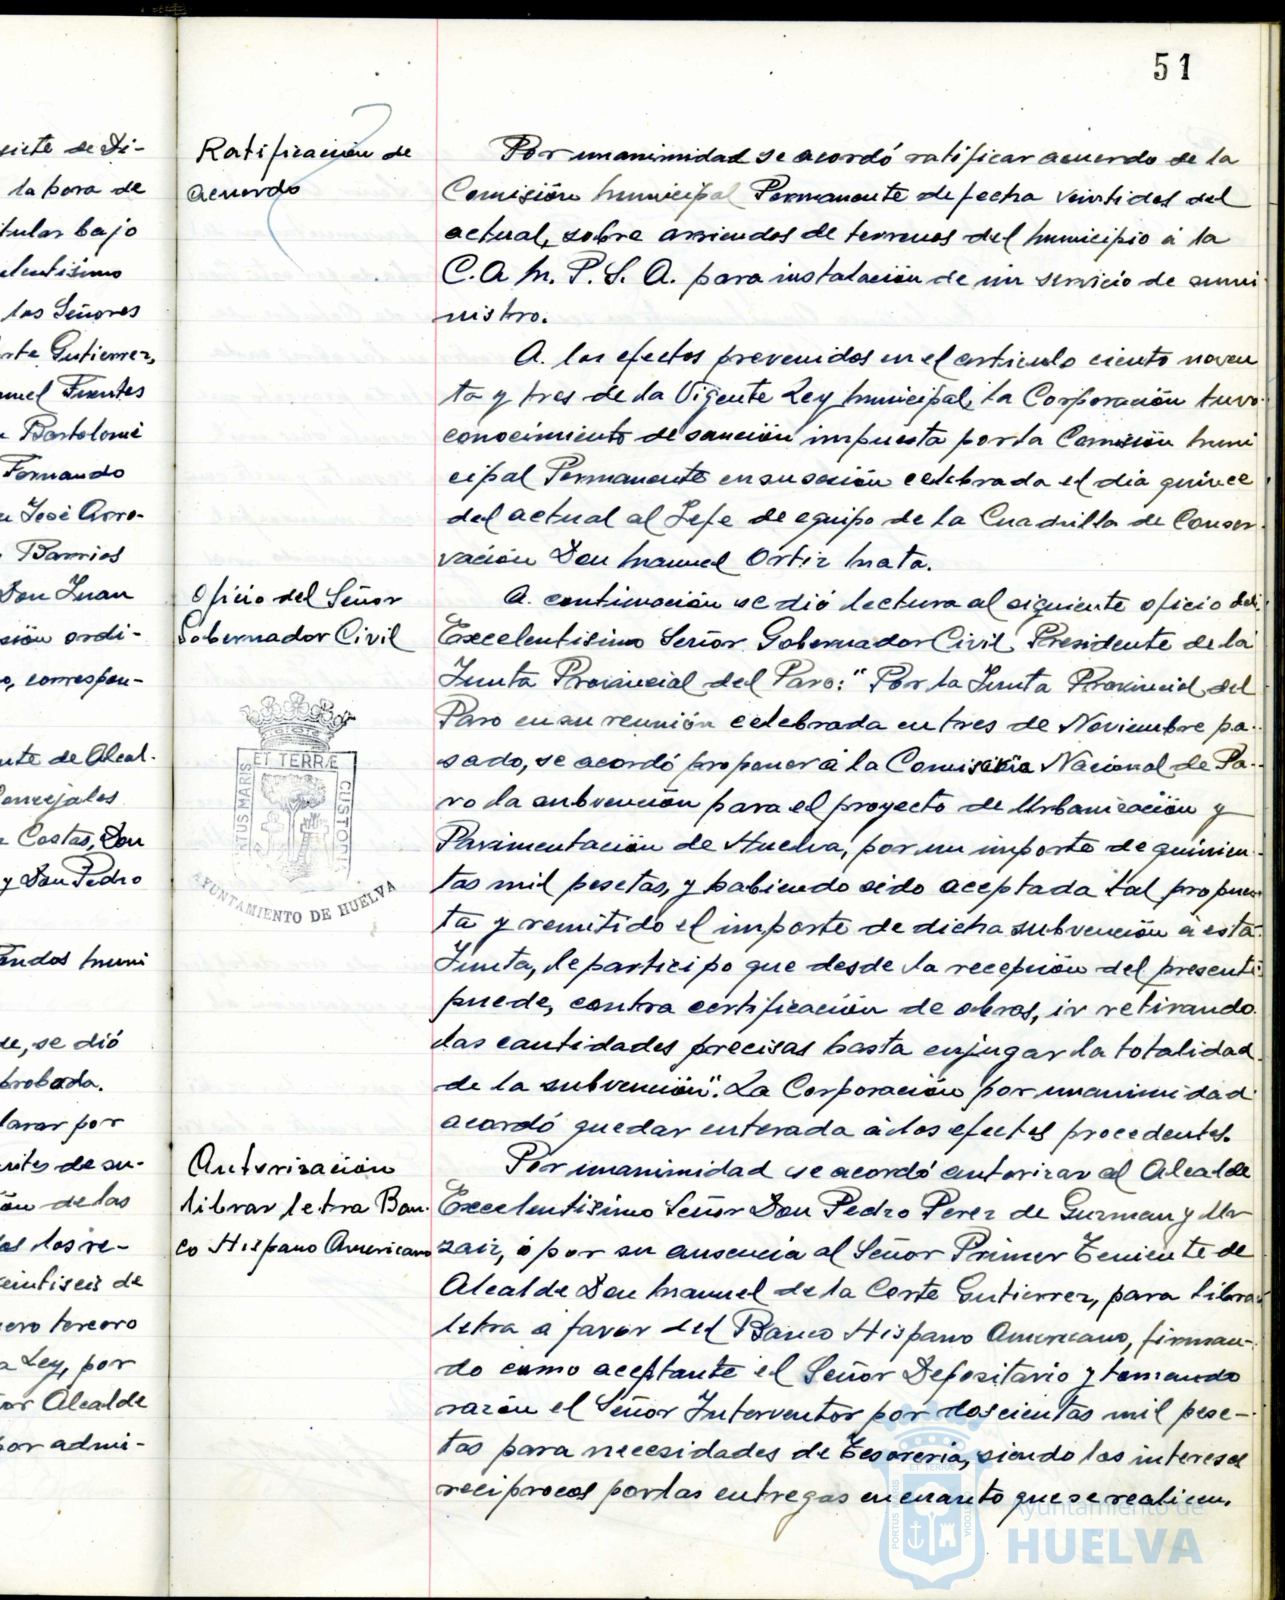 51
siete de Di-
la hora de
tular bajo
elentisimo
los Señores
rte Gutierrez,
nuel Fuentes
Bartolomé
Fernando
José Arro-
Barrios
Don Juan
sión ordi-
o, correspon-
nte de Alcal-
Concejales
Costas, Don
y Don Pedro
Fondos muni
de, se dió
probada.
larar por
ntes de su-
ón de las
los re-
veintiseis de
ero tercero
a Ley, por
or Alcalde
por admi-
Ratificación de
acuerdo
Por unanimidad se acordó ratificar acuerdo de la
Comisión Municipal Permanente de fecha veintidos del
actual, sobre arriendos de terrenos del Municipio á la
C.A.M.P.S.A. para instalación de un servicio de sumi
nistro.
A los efectos prevenidos en el articulo ciento noven
ta y tres de la Vigente Ley Municipal, la Corporación tuvo
conocimiento de sanción impuesta por la Comisión Muni
cipal Permanente en su sesión celebrada el dia quince
del actual al Jefe de equipo de la Cuadrilla de Conser-
vación Don Manuel Ortiz Mata.
Oficio del Señor
Gobernador Civil
A continuación se dió lectura al siguiente oficio del
Excelentisimo Señor Gobernador Civil Presidente de la
Junta Provincial del Paro: "Por la Junta Provincial del
Paro en su reunión celebrada en tres de Noviembre pa-
sado, se acordó proponer á la Comisión Nacional de Pa-
ro la subvención para el proyecto de Urbanización y
Pavimentación de Huelva, por un importe de quinien-
tas mil pesetas, y habiendo sido aceptada tal propues-
ta y remitido el importe de dicha subvención á esta
Junta, le participo que desde la recepción del presente
puede, contra certificación de obras, ir retirando
las cantidades precisas hasta enjugar la totalidad
de la subvención". La Corporación por unanimidad
acordó quedar enterada á los efectos procedentes.
PORTUS MARIS ET TERRÆ CUSTODIA
AYUNTAMIENTO DE HUELVA
Autorización
librar letra Ban-
co Hispano Americano
Por unanimidad se acordó autorizar al Alcalde
Excelentisimo Señor Don Pedro Perez de Guzman y Ur
zaiz, ó por su ausencia al Señor Primer Teniente de
Alcalde Don Manuel de la Corte Gutierrez, para librar
letra a favor del Banco Hispano Americano, firman-
do como aceptante el Señor Depositario y tomando
razón el Señor Interventor por doscientas mil pese-
tas para necesidades de Tesoreria, siendo los intereses
reciprocos por las entregas en cuanto que se realicen.
PORTUS MARIS ET TERRAE CUSTODIA
Ayuntamiento de
HUELVA